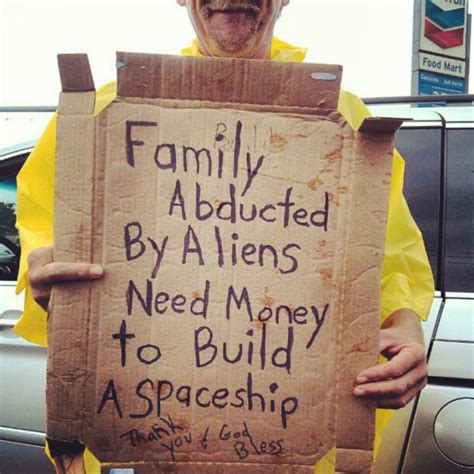 Family
Abducted
By Aliens
Need Money
to Build
A Spaceship
Thank
you & God
Bless
Food Mart